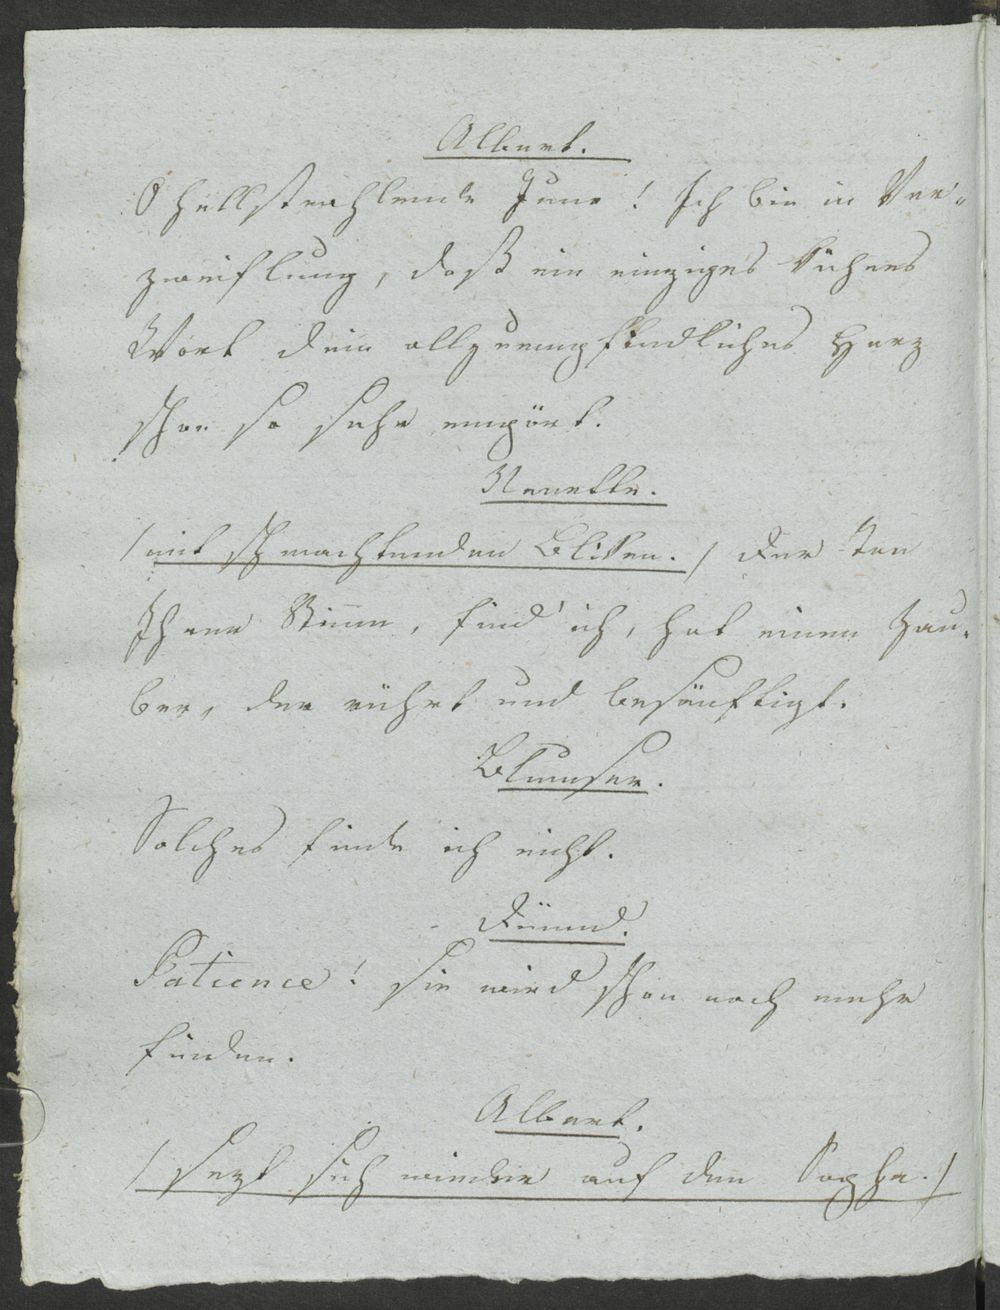 Albert.
O hellstrahlende Juno! Ich bin in Ver-
zweiflung, daß ein einziges kühnes
Wort dein allzuempfindliches Herz
schon so sehr empört.
Nanette.
/ mit schmachtenden Bliken. / Der Ton
Ihrer Stimme, find' ich, hat einen Zau-
ber, der rührt und besänftigt.
Blumser.
Solches finde ich nicht.
Patience! Sie wird schon noch mehr
finden.
Albert.
/ sezt sich wieder auf den Sopha. /